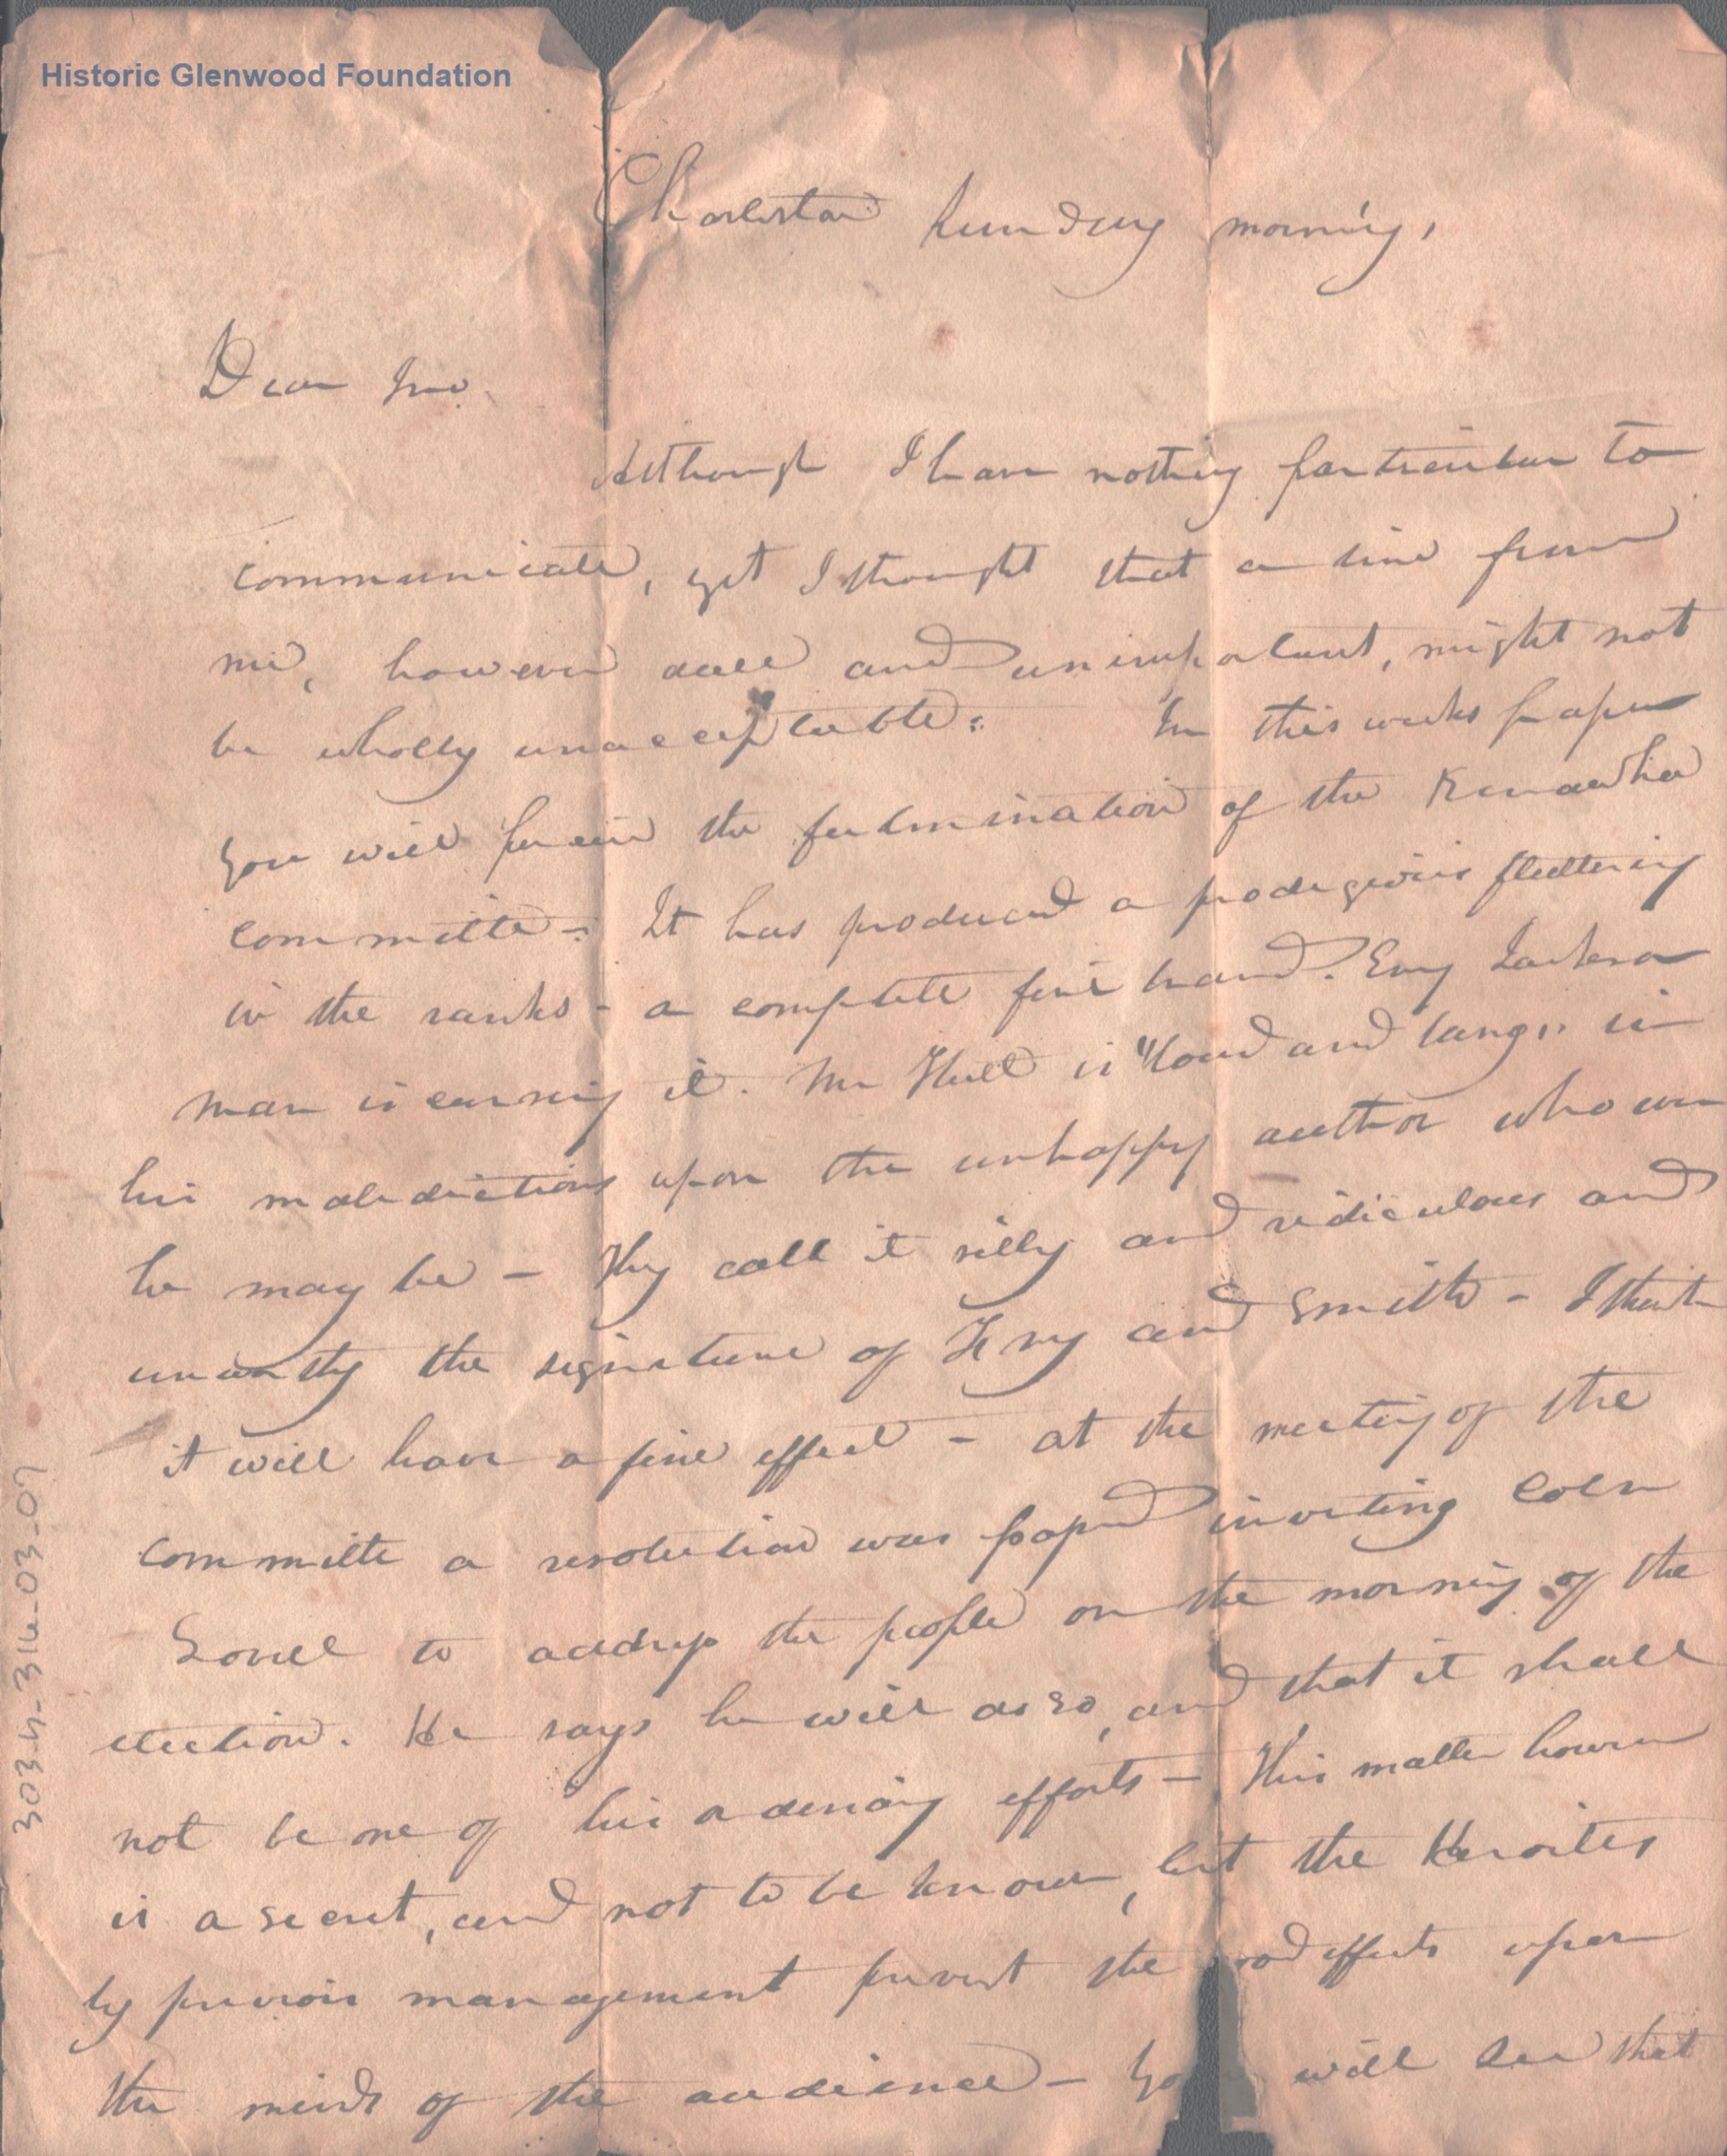 Historic Glenwood Foundation
Charleston Sunday morning,
Dear Jno.
Although I have nothing particular to
communicate, yet I thought that a line from
me, however dull and unimportant, might not
be wholly unacceptable: In this weeks paper
you will perceive the fulmination of the Kenawha
committe - It has produced a prodigious fluttering
in the ranks - a complete fire brand. Every Jackson
man is cursing it. Mr Hall is "loud and lang" in
his maledictions upon the unhappy author whoever
he may be - They call it silly and ridiculous and
unworthy the signature of Fry and Smith - I think
it will have a fine effect - at the meeting of the
committe a resolution was passed inviting Coln
Lovell to address the people on the morning of the
election. He says he will do so, and that it shall
not be one of his ordinary efforts - This matter however
is a secret, and not to be known, lest the Heroites
by previous management prevent the good effects upon
the minds of the audience - You will see that
303-4-314-03-07